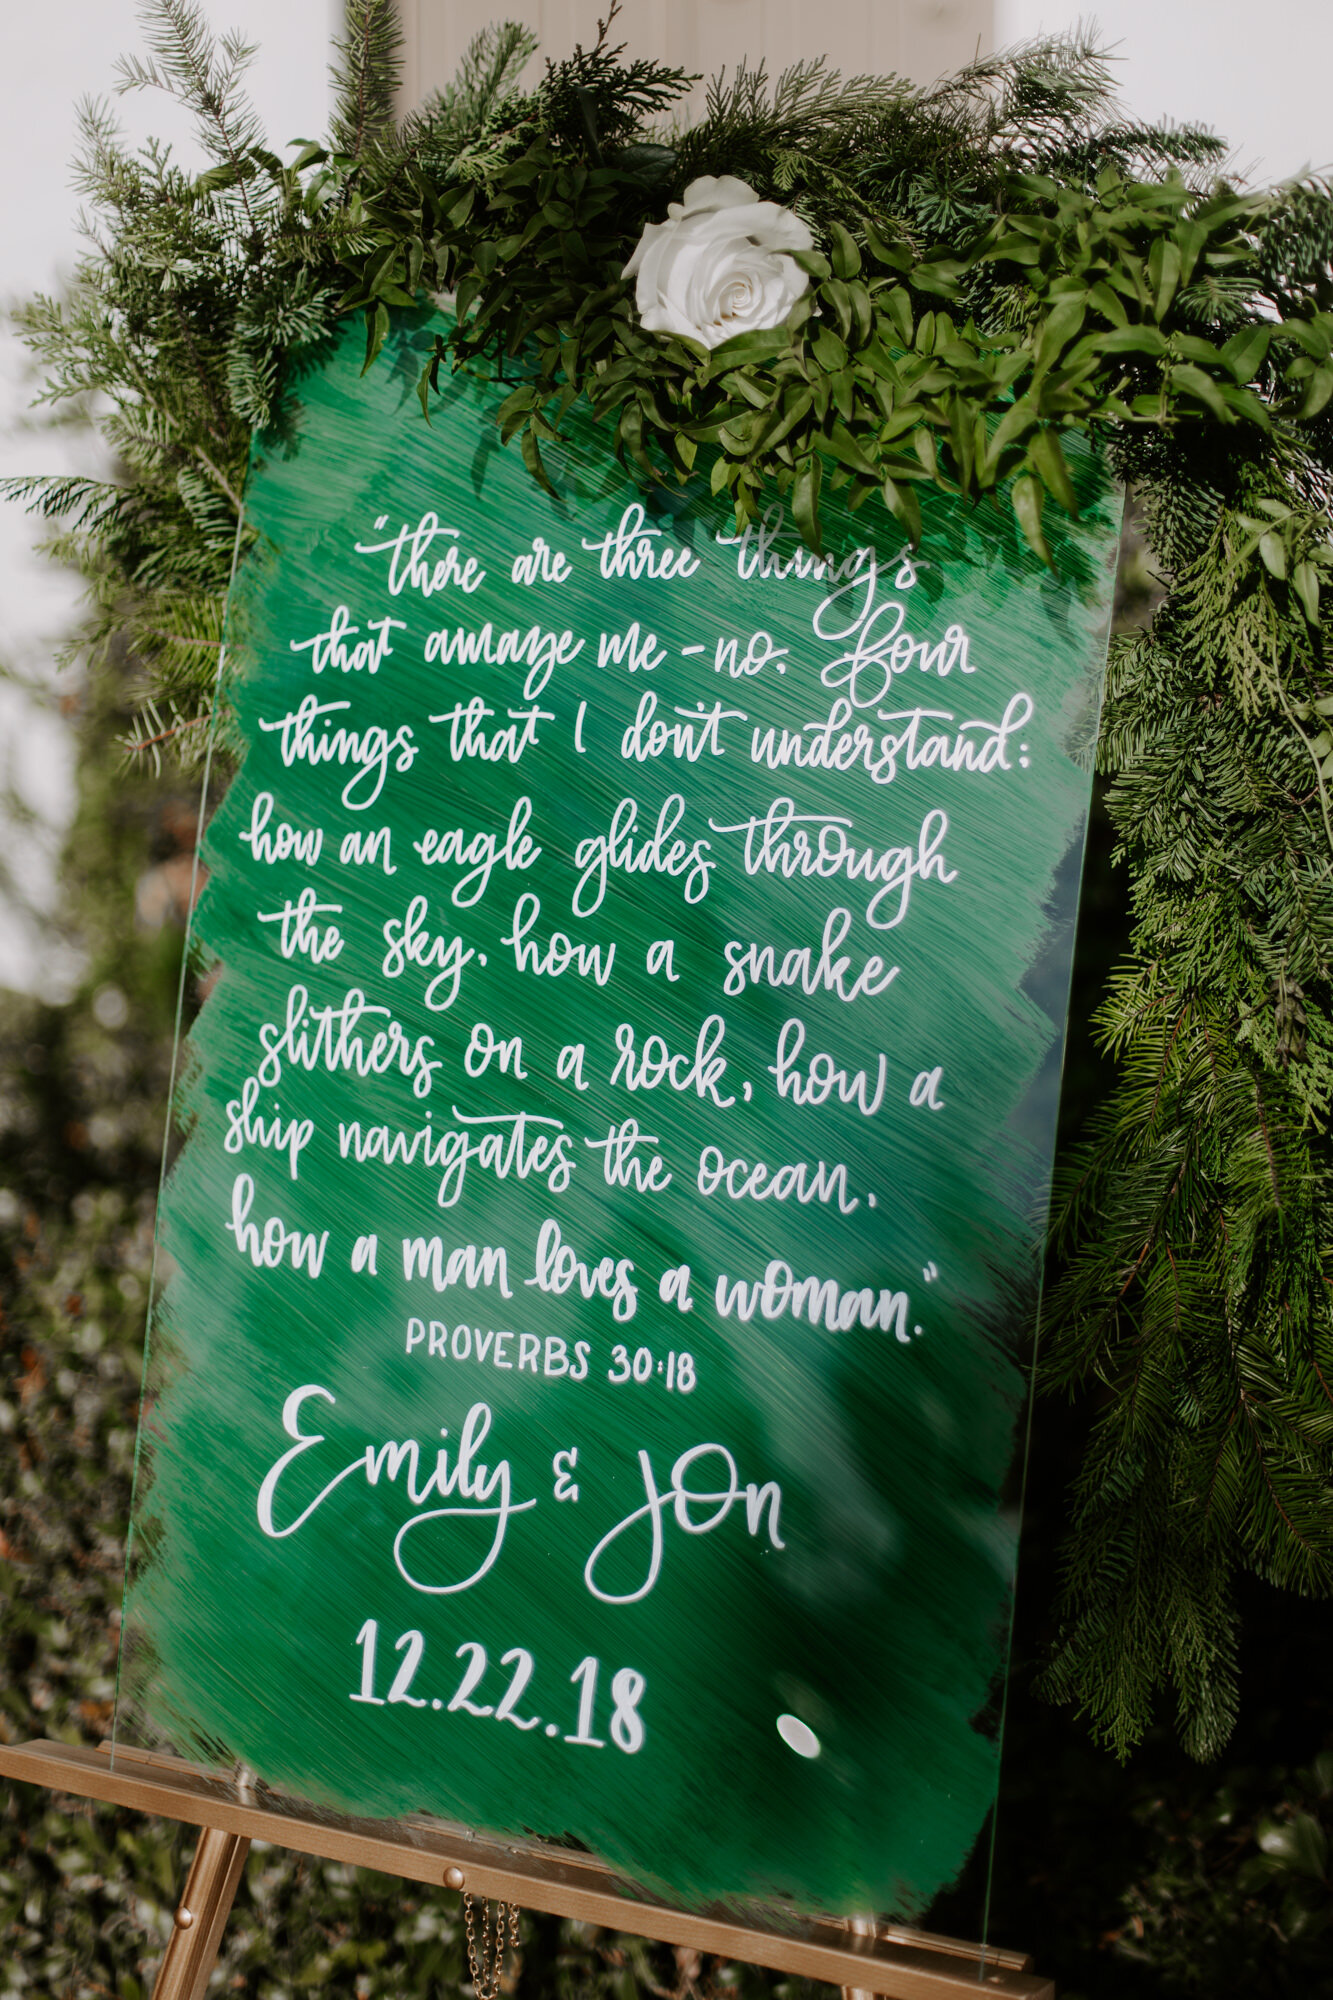 "there are three things
that amaze me - no, four
things that I don't understand:
how an eagle glides through
the sky, how a snake
slithers on a rock, how a
ship navigates the ocean,
how a man loves a woman."
PROVERBS 30:18
Emily & Jon
12.22.18